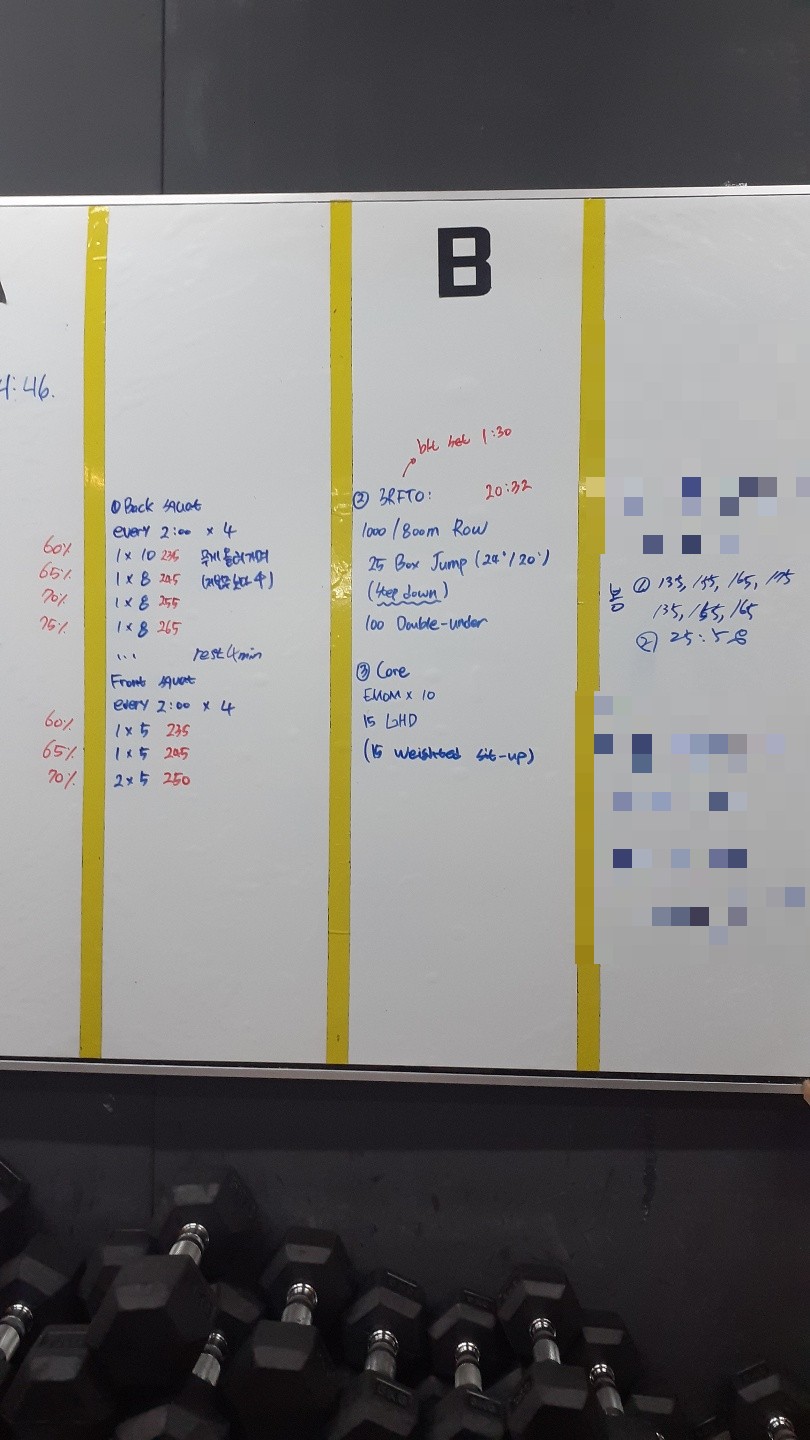 4:46.
① Back squat
every 2:00 × 4
60% 1 × 10 235
65% 1 × 8 245
70% 1 × 8 255
75% 1 × 8 265
... rest 4min
Front squat
every 2:00 × 4
60% 1 × 5 235
65% 1 × 5 245
70% 2 × 5 250
B
btt set 1:30
② 3RFTO: 20:32
1000/800m Row
25 Box Jump (24"/20")
(step down)
100 Double-under
③ Core
EMOM × 10
15 GHD
(15 weighted sit-up)
봉 ① 135, 155, 165, 175
135, 155, 165
② 25:58